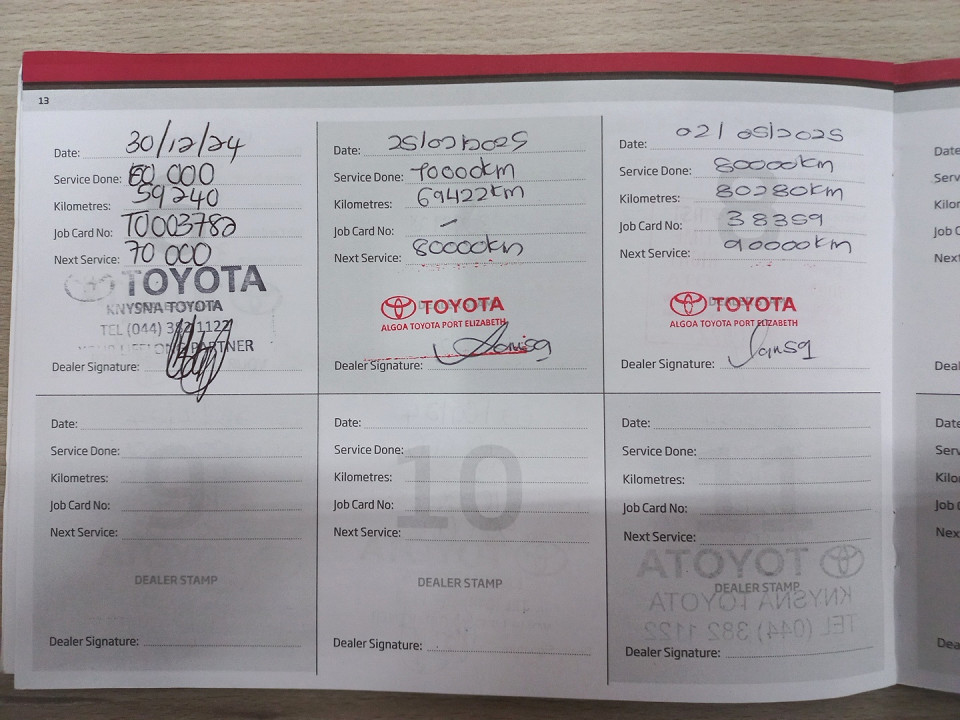 13
Date: 30/12/24
Service Done: 60 000
Kilometres: 59240
Job Card No: T0003782
Next Service: 70 000
TOYOTA
KNYSNA TOYOTA
TEL (044) 382 1122
YOUR LIFELONG PARTNER
Dealer Signature:
Date: 25/02/2025
Service Done: 70000km
Kilometres: 69422km
Job Card No: -
Next Service: 80000km
TOYOTA
ALGOA TOYOTA PORT ELIZABETH
Dealer Signature:
8
Date: 02/05/2025
Service Done: 80000km
Kilometres: 80280km
Job Card No: 38359
Next Service: 90000km
DEALER STAMP
TOYOTA
ALGOA TOYOTA PORT ELIZABETH
Dealer Signature:
Date:
Service Done:
Kilometres:
Job Card No:
Next Service:
DEALER STAMP
Dealer Signature:
10
Date:
Service Done:
Kilometres:
Job Card No:
Next Service:
DEALER STAMP
Dealer Signature:
11
Date:
Service Done:
Kilometres:
Job Card No:
Next Service:
TOYOTA
DEALER STAMP
KNYSNA TOYOTA
TEL (044) 382 1122
Dealer Signature:
Date
Serv
Kilo
Job C
Nex
Deal
Date
Serv
Kilo
Job C
Nex
Dea